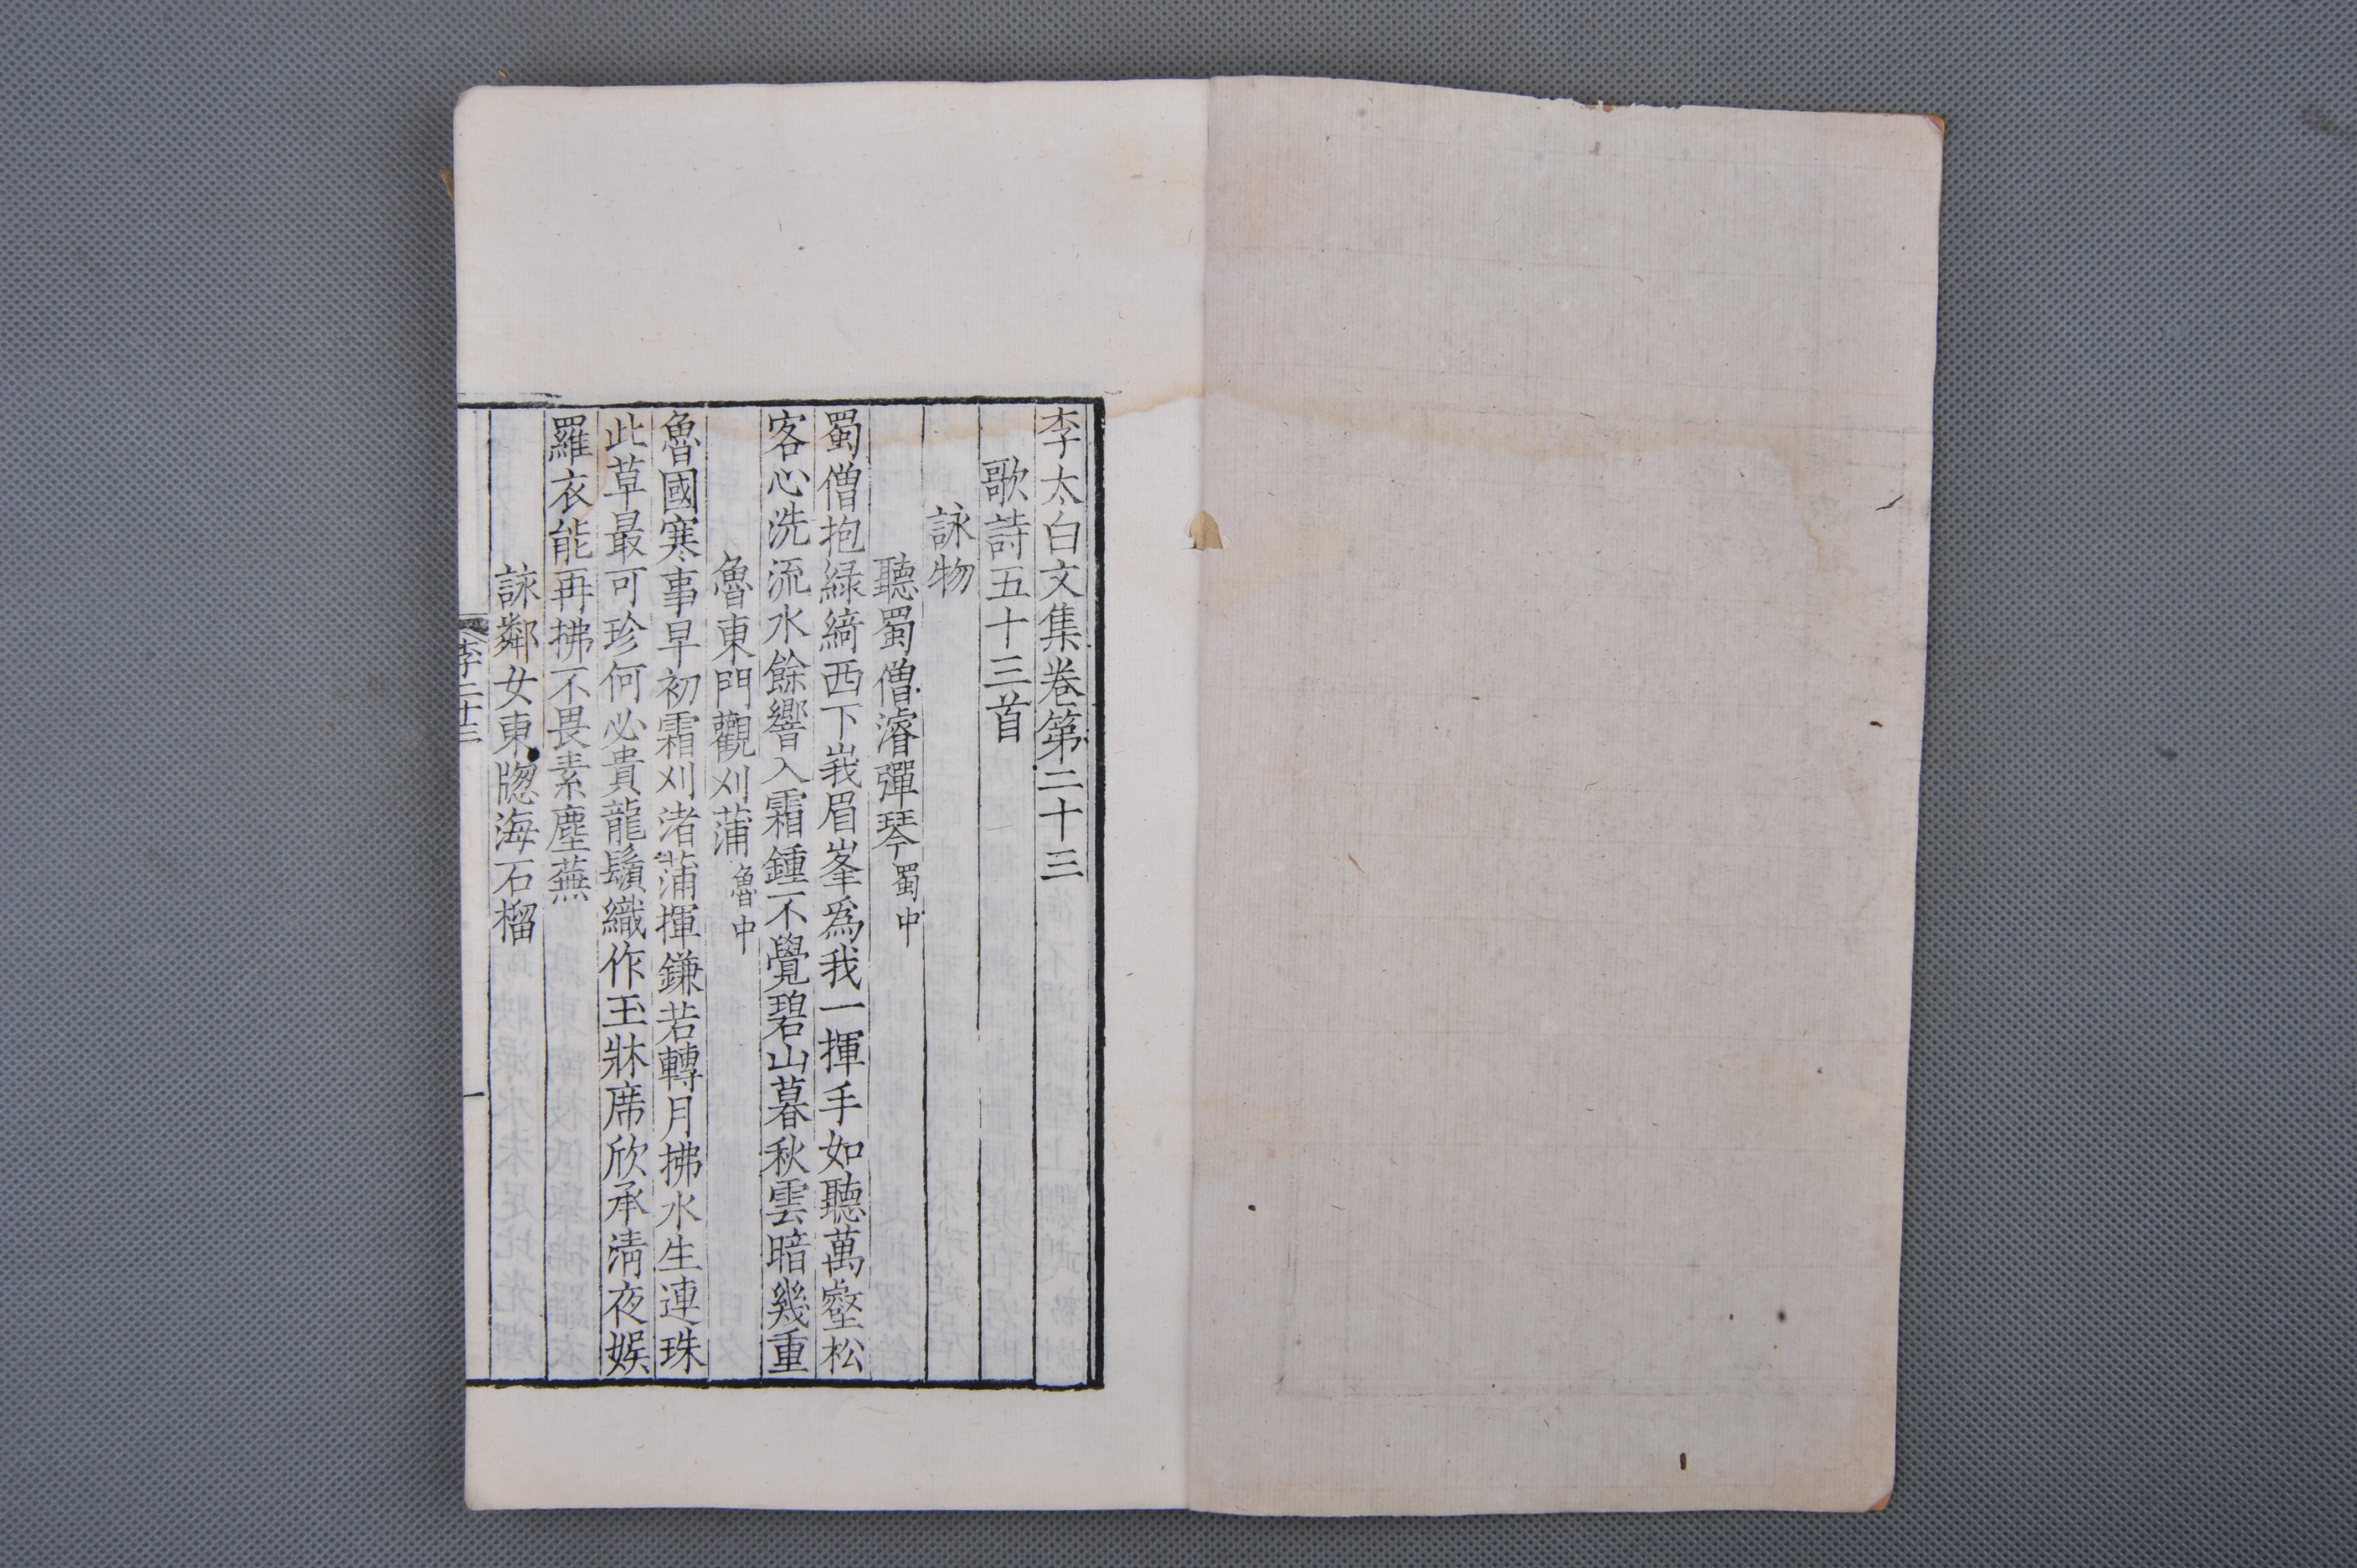 李太白文集卷第二十三
歌詩五十三首
詠物
聽蜀僧濬彈琴蜀中
蜀僧抱綠綺西下峩眉峯爲我一揮手如聽萬壑松
客心洗流水餘響入霜鍾不覺碧山暮秋雲暗幾重
魯東門觀刈蒲魯中
魯國寒事早初霜刈渚蒲揮鎌若轉月拂水生連珠
此草最可珍何必貴龍鬚織作玉牀席欣承清夜娛
羅衣能再拂不畏素塵蕪
詠鄰女東牎海石榴
李二十三
一